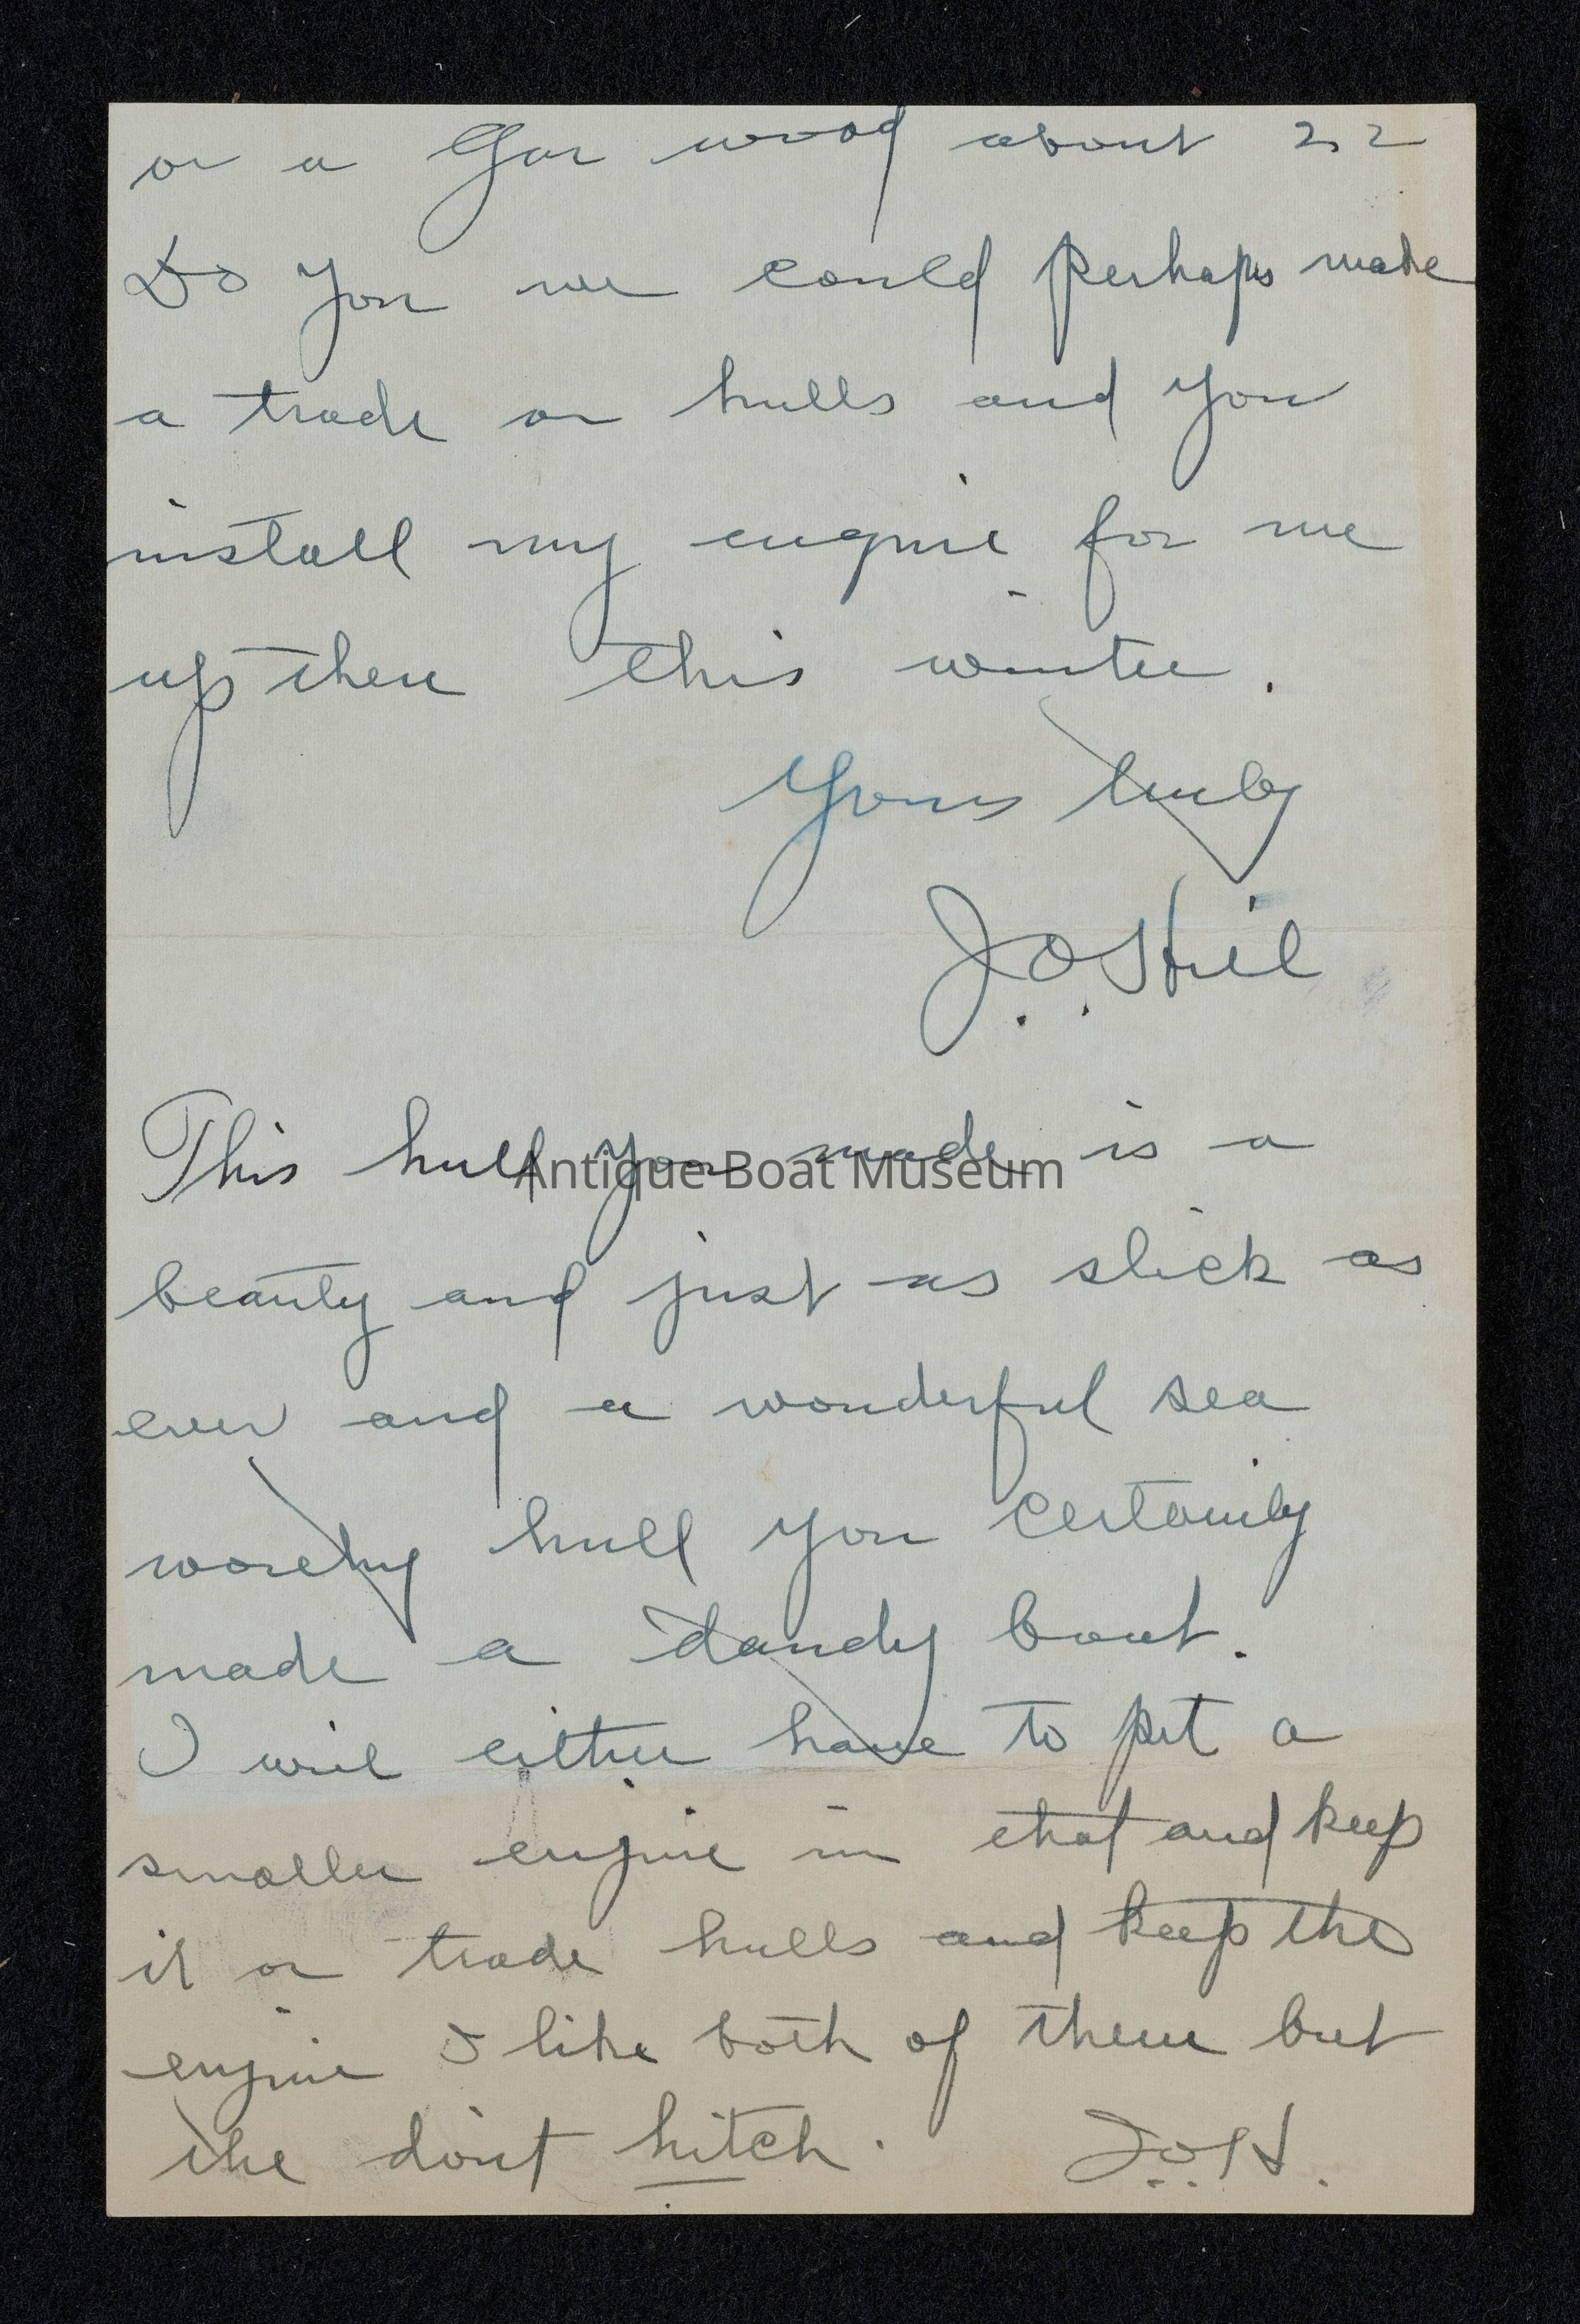 or a Gar wood about 22
Do you we could perhaps made
a trade or hulls and you
install my engine for me
up there this winter.
Yours truly
J.O. Hill
This hull you made is a
Antique Boat Museum
beauty and just as slick as
ever and a wonderful sea
worthy hull you certainly
made a dandy boat.
I will either have to put a
smaller engine in that and keep
it or trade hulls and keep the
engine I like both of them but
the don't hitch. J.O.H.